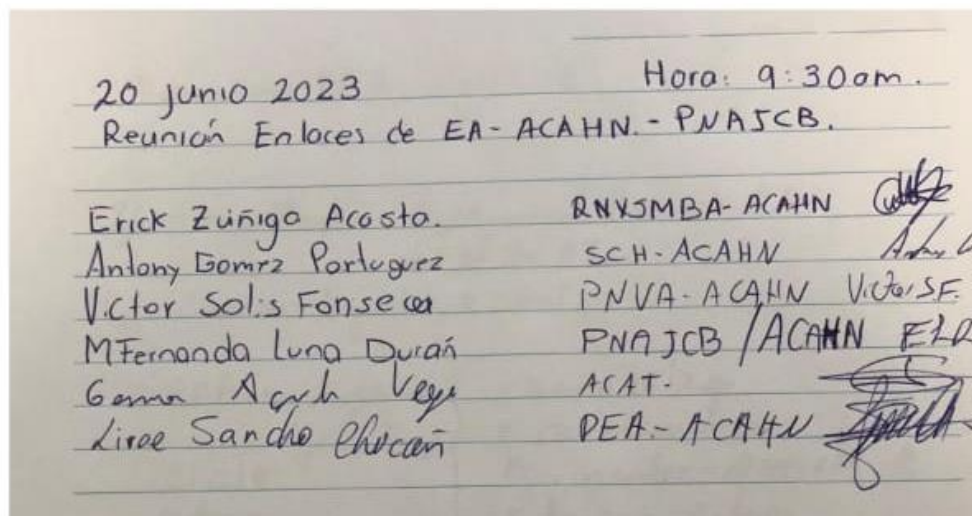 20 junio 2023 Hora: 9:30am.
Reunión Enlaces de EA- ACAHN.- PNAJCB.
Erick Zúñiga Acosta. RNVSMBA- ACAHN
Antony Gomez Portuguez SCH-ACAHN
Victor Solis Fonseca PNVA-ACAHN Victor S.F.
MFernanda Luna Durán PNAJCB/ACAHN FLD
ACAT-
Sancho PEA.- ACAHN